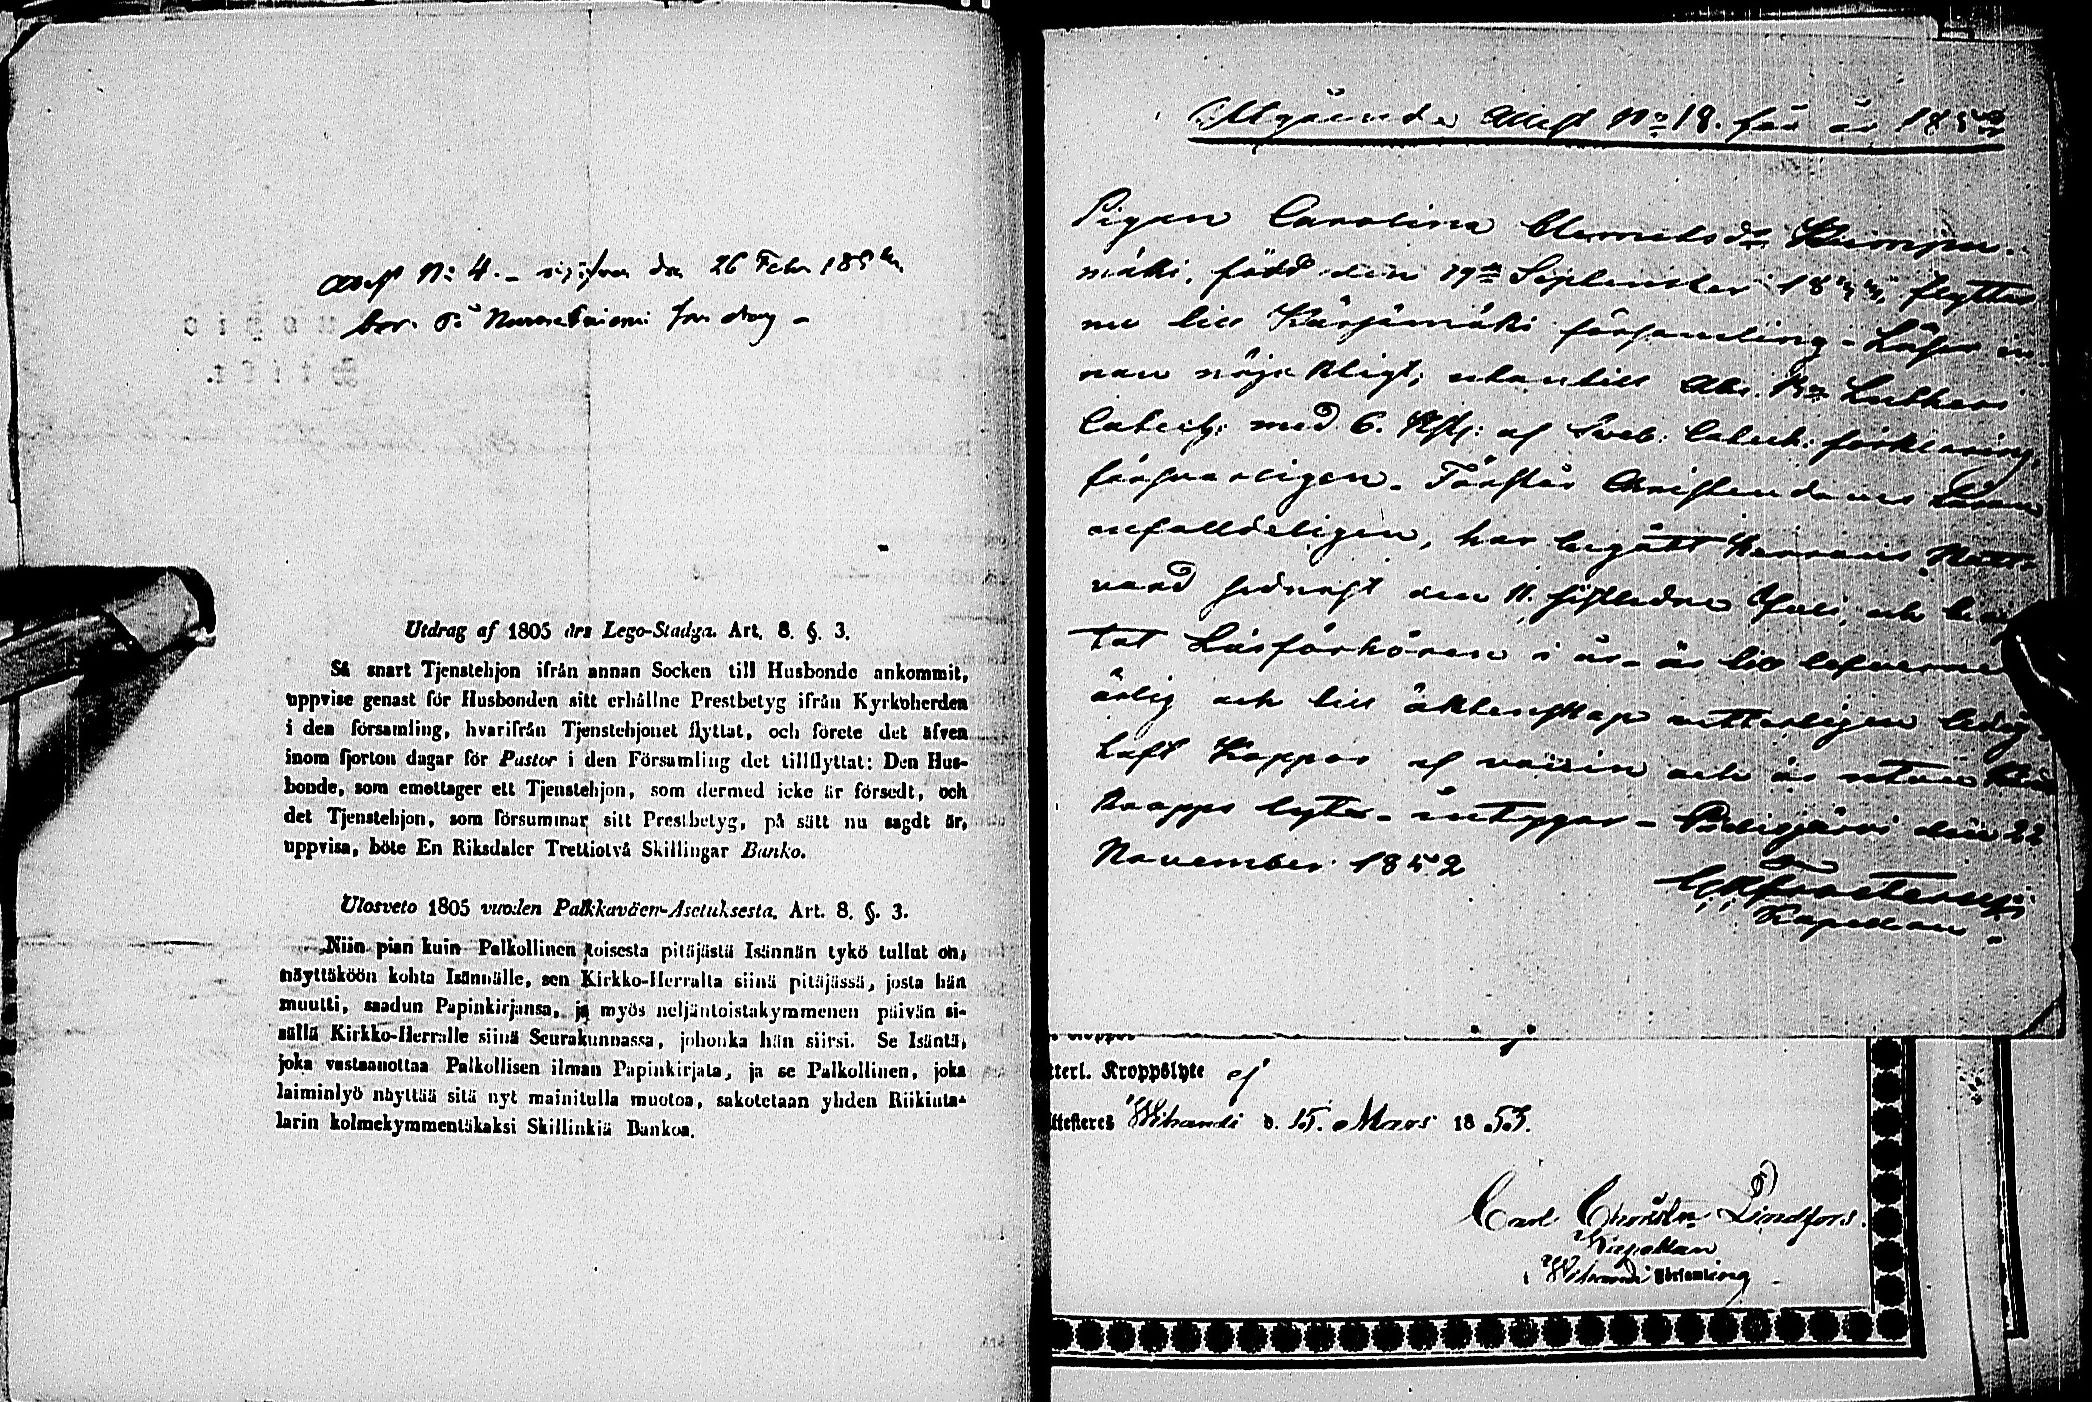 Attest N: 4. – den 26 Febr 185
bor på för dag –
Utdrag af 1805 års Lego-Stadga. Art. 8. §. 3.
Så snart Tjenstehjon ifrån annan Socken till Husbonde ankommit,
uppvise genast för Husbonden sitt erhållne Prestbetyg ifrån Kyrkoherden
i den församling, hvarifrån Tjenstehjonet flyttat, och förete det äfven
inom fjorton dagar för Pastor i den Församling det tillflyttat: Den Hus-
bonde, som emottager ett Tjenstehjon, som dermed icke är försedt, och
det Tjenstehjon, som försummar sitt Prestbetyg, på sätt nu sagdt är,
uppvisa, böte En Riksdaler Trettiotvå Skillingar Banko.
Ulosveto 1805 vuoden Palkkaväen-Asetuksesta. Art. 8. §. 3.
Niin pian kuin Palkollinen toisesta pitäjästä Isännän tykö tullut on,
näyttäköön kohta Isännälle, sen Kirkko-Herralta siinä pitäjässä, josta hän
muutti, saadun Papinkirjansa, ja myös neljäntoistakymmenen päivän si-
sällä Kirkko-Herralle siinä Seurakunnassa, johonka hän siirsi. Se Isäntä,
joka vastaanottaa Palkollisen ilman Papinkirjata, ja se Palkollinen, joka
laiminlyö näyttää sitä nyt mainitulla muotoa, sakotetaan yhden Riikinta-
larin kolmekymmentäkaksi Skillinkiä Bankoa.
Utgående Attest No 18. för år 1852
Pigan Carolina Clemetsdr
mäki, född den 19de September 18 flyttar
nu till Kärsämäki församling – Läser in-
nan nöjaktigt, utantill Abc. Bn Lutheri
Catech: med 6. af Sveb: Catech: förklaring
försvarligen – Förstår Christendomens Läran
enfalldeligen, har begått Herrans Natt-
vard sednast den 11. sistledne Juli, och bevis-
tat Läsförhören i år – är till lefvernet
ärlig och till äktenskap vitterligen ledig,
haft Koppor af naturen och är utan
kropps lyte – intygar – Pidisjärvi den 22
November 1852
Kapellan.
tterl. Kroppslyte ej
ttesteres Wihandi d. 15. Mars 18 53.
Carl Christn Lindfors.
Kapellan
i Wihandi Församling